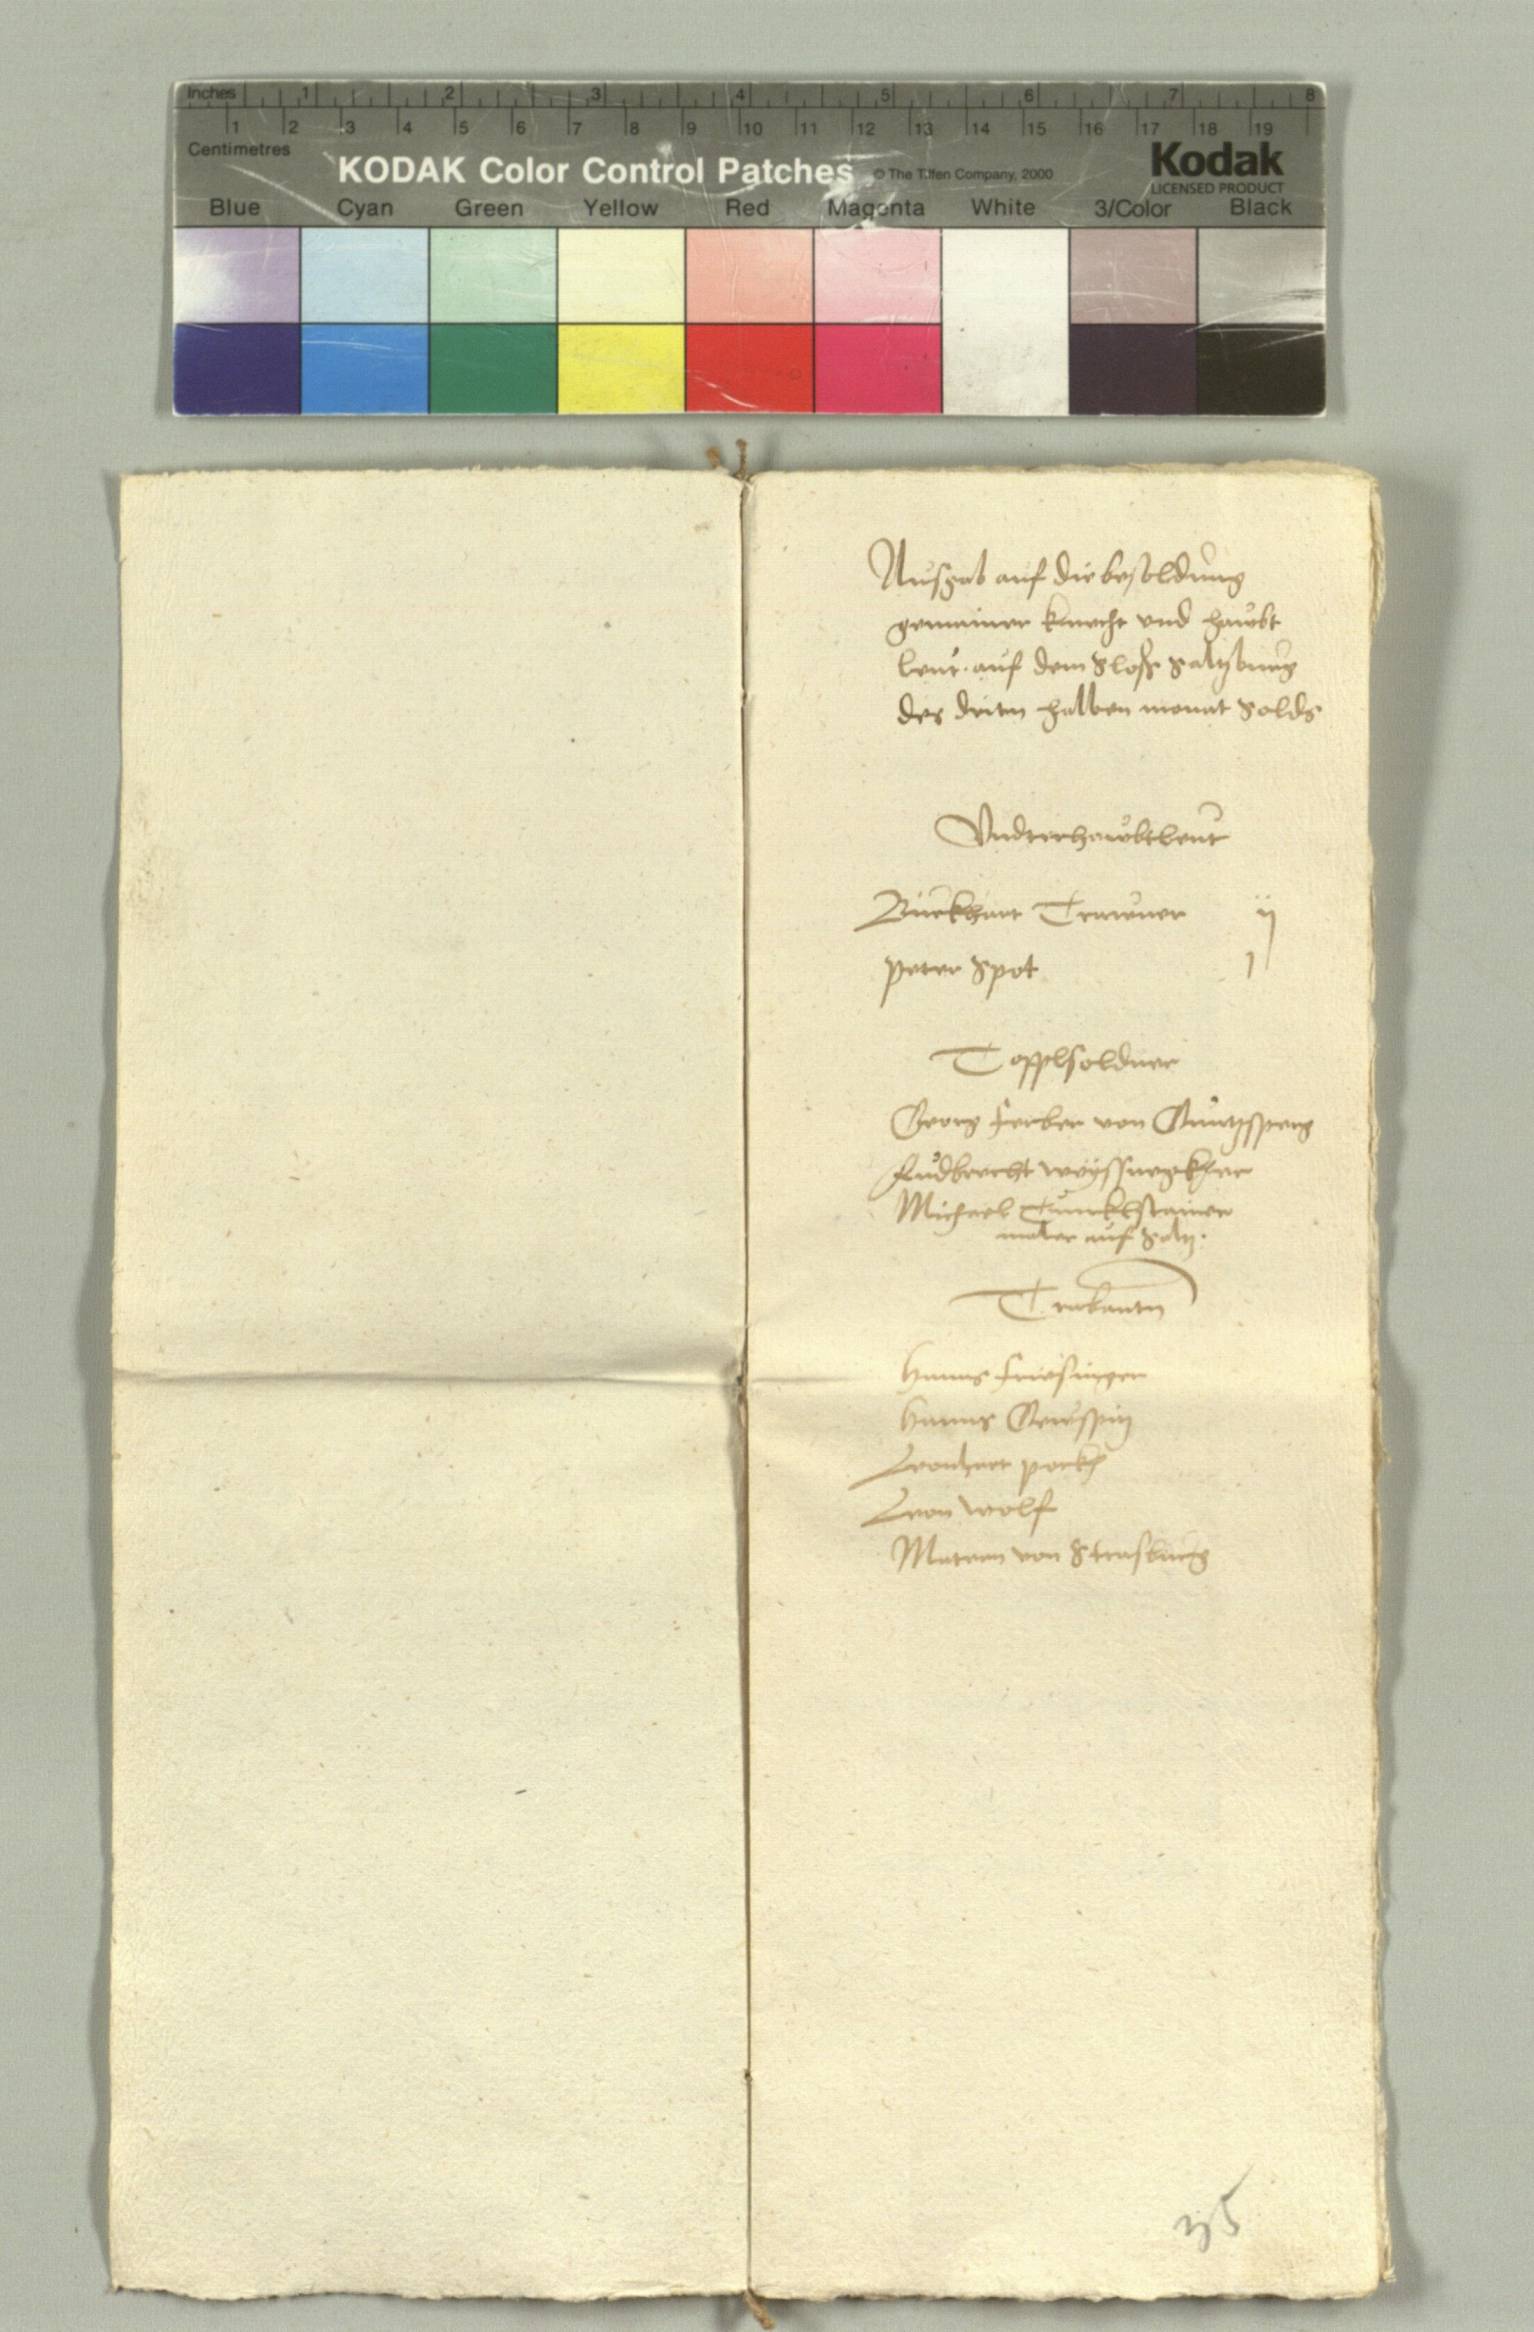 Inches 1 2 3 4 5 6 7 8
1 2 3 4 5 6 7 8 9 10 11 12 13 14 15 16 17 18 19
Centimetres
KODAK Color Control Patches © The Tiffen Company, 2000 Kodak
LICENSED PRODUCT
Blue Cyan Green Yellow Red Magenta White 3/Color Black
Ausgab auf die besoldung
gemainer knecht vnd haubt
leut. auf dem Sloß Saltzburg
des dritn halben monat Solds
Vndterhaubtleut
Burkhart Trawner ij
peter Spot 1
Topplsoldner
Georg ferber von
Rudbrecht
Michael
maler auf Saltz.
Trabantn
Hanns freisinger
Hanns
Leonhart pockh
Leon wolf
Matern von Strasburg
35